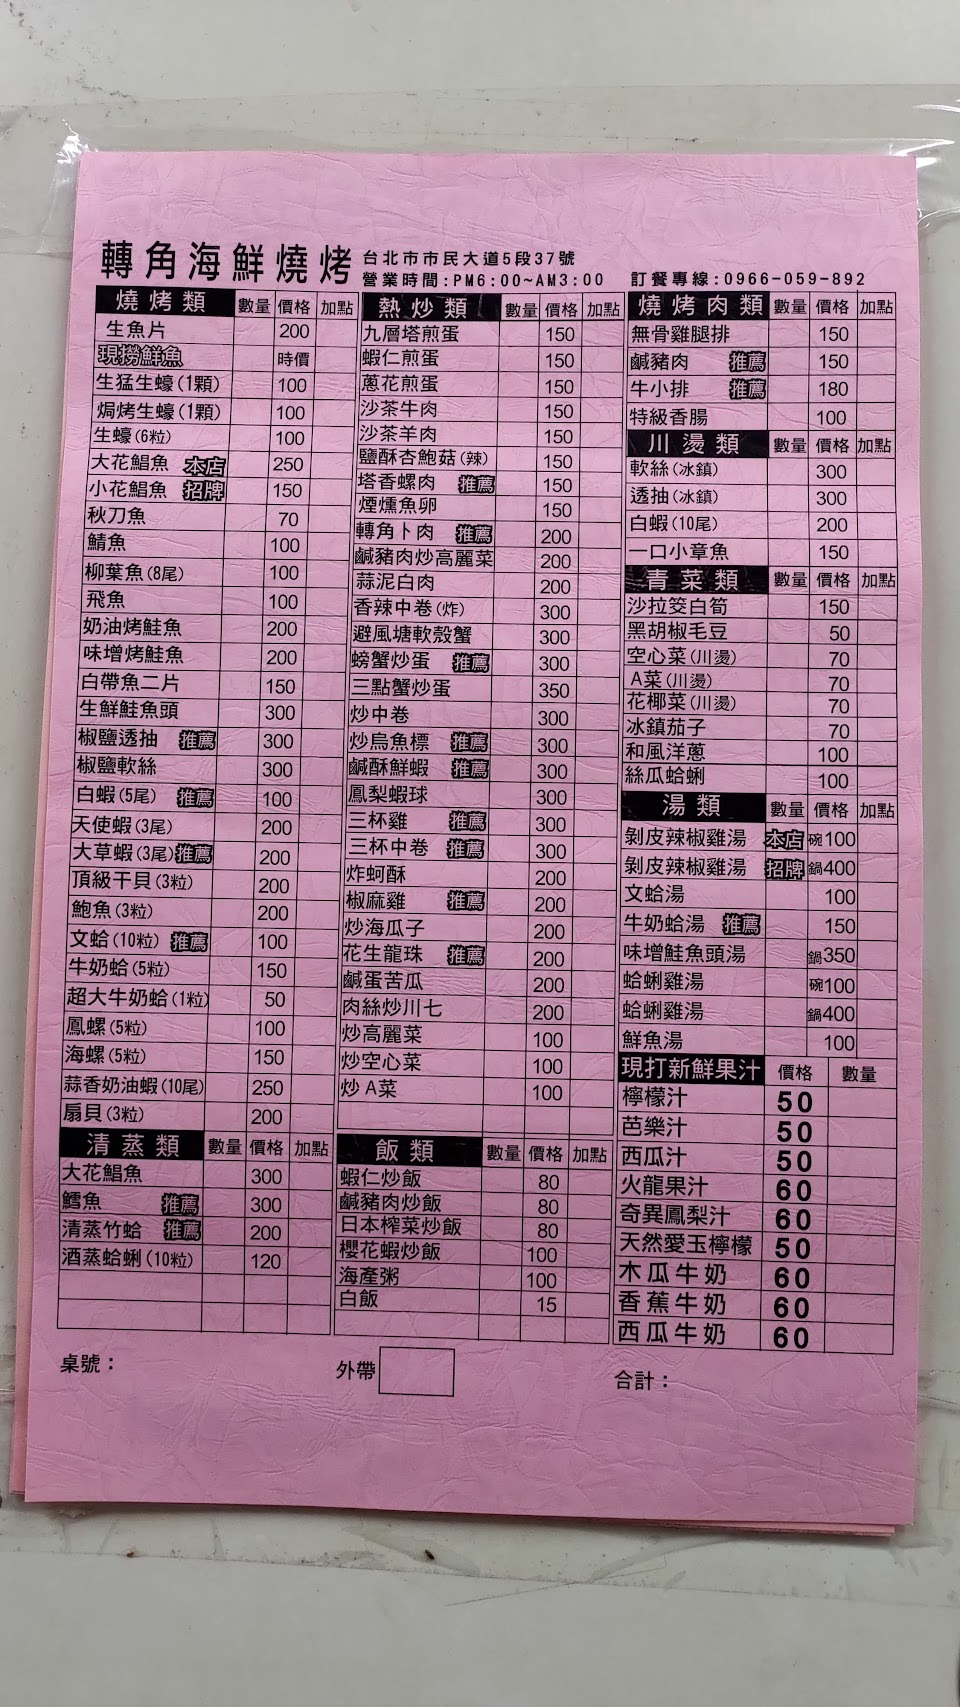 轉角海鮮燒烤
台北市市民大道5段37號
營業時間:PM6:00~AM3:00
訂餐專線:0966-059-892
燒烤類 數量 價格 加點
生魚片 200
現撈鮮魚 時價
生猛生蠔(1顆) 100
焗烤生蠔(1顆) 100
生蠔(6粒) 100
大花鯧魚 本店 250
小花鯧魚 招牌 150
秋刀魚 70
鯖魚 100
柳葉魚(8尾) 100
飛魚 100
奶油烤鮭魚 200
味增烤鮭魚 200
白帶魚二片 150
生鮮鮭魚頭 300
椒鹽透抽 推薦 300
椒鹽軟絲 300
白蝦(5尾) 推薦 100
天使蝦(3尾) 200
大草蝦(3尾) 推薦 200
頂級干貝(3粒) 200
鮑魚(3粒) 200
文蛤(10粒) 推薦 100
牛奶蛤(5粒) 150
超大牛奶蛤(1粒) 50
鳳螺(5粒) 100
海螺(5粒) 150
蒜香奶油蝦(10尾) 250
扇貝(3粒) 200
清蒸類 數量 價格 加點
大花鯧魚 300
鱈魚 推薦 300
清蒸竹蛤 推薦 200
酒蒸蛤蜊(10粒) 120
熱炒類 數量 價格 加點
九層塔煎蛋 150
蝦仁煎蛋 150
蔥花煎蛋 150
沙茶牛肉 150
沙茶羊肉 150
鹽酥杏鮑菇(辣) 150
塔香螺肉 推薦 150
煙燻魚卵 150
轉角卜肉 推薦 200
鹹豬肉炒高麗菜 200
蒜泥白肉 200
香辣中卷(炸) 300
避風塘軟殼蟹 300
螃蟹炒蛋 推薦 300
三點蟹炒蛋 350
炒中卷 300
炒烏魚標 推薦 300
鹹酥鮮蝦 推薦 300
鳳梨蝦球 300
三杯雞 推薦 300
三杯中卷 推薦 300
炸蚵酥 200
椒麻雞 推薦 200
炒海瓜子 200
花生龍珠 推薦 200
鹹蛋苦瓜 200
肉絲炒川七 200
炒高麗菜 100
炒空心菜 100
炒A菜 100
飯類 數量 價格 加點
蝦仁炒飯 80
鹹豬肉炒飯 80
日本榨菜炒飯 80
櫻花蝦炒飯 100
海產粥 100
白飯 15
燒烤肉類 數量 價格 加點
無骨雞腿排 150
鹹豬肉 推薦 150
牛小排 推薦 180
特級香腸 100
川燙類 數量 價格 加點
軟絲(冰鎮) 300
透抽(冰鎮) 300
白蝦(10尾) 200
一口小章魚 150
青菜類 數量 價格 加點
沙拉筊白筍 150
黑胡椒毛豆 50
空心菜(川燙) 70
A菜(川燙) 70
花椰菜(川燙) 70
冰鎮茄子 70
和風洋蔥 100
絲瓜蛤蜊 100
湯類 數量 價格 加點
剝皮辣椒雞湯 本店 碗100
剝皮辣椒雞湯 招牌 鍋400
文蛤湯 100
牛奶蛤湯 推薦 150
味增鮭魚頭湯 鍋350
蛤蜊雞湯 碗100
蛤蜊雞湯 鍋400
鮮魚湯 100
現打新鮮果汁 價格 數量
檸檬汁 50
芭樂汁 50
西瓜汁 50
火龍果汁 60
奇異鳳梨汁 60
天然愛玉檸檬 50
木瓜牛奶 60
香蕉牛奶 60
西瓜牛奶 60
桌號：
外帶
合計：